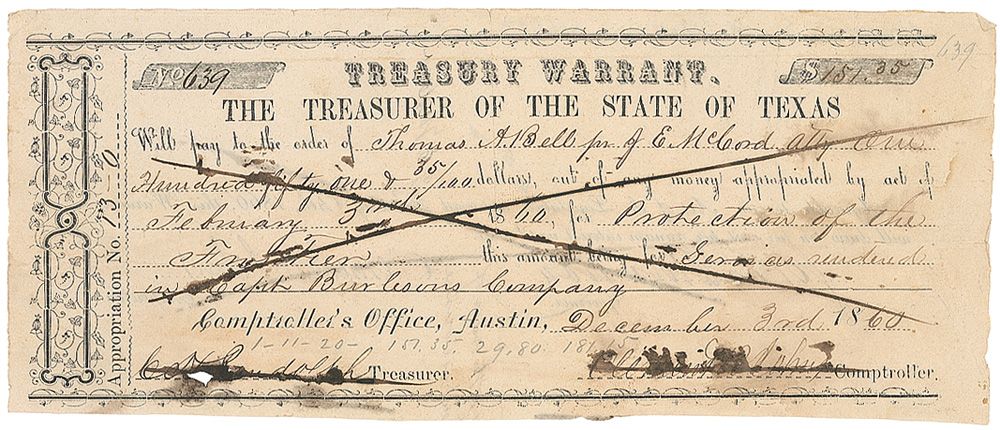 639
No 639 TREASURY WARRANT. $151.35
THE TREASURER OF THE STATE OF TEXAS
Will pay to the order of Thomas A Bell pr J E McCord atty One
Hundred fifty one & 35/100 dollars, out of any money appropriated by act of
February 3rd 1860, for Protection of the
Frontier this amount being for Services rendered
in Capt Burlesons Company
Comptroller's Office, Austin, December 3rd 1860
1-11-20- 151.35. 29.80 181.15
C H Randolph Treasurer. Comptroller
Appropriation No. 73-0